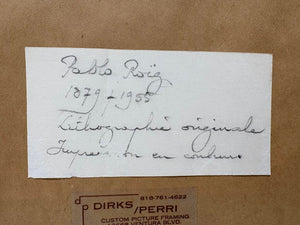 Pablo Roig
1879-1955
Lithographie originale
Impression en couleurs
dp DIRKS/PERRI
818-761-4622
CUSTOM PICTURE FRAMING
VENTURA BLVD.